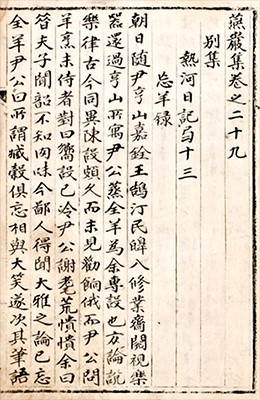 燕巖集卷之二十九
別集
熱河日記局十三
忘羊錄
朝日隨尹亨山嘉銓王鵠汀民皥入修業齋閱視樂
器還過亨山所寓尹公蒸全羊為余專設也方論說
樂律古今同異陳設頗久而未見勸餉俄而尹公問
羊烹未侍者對曰嚮設已冷尹公謝耄荒憒憒余曰
昔夫子聞韶不知肉味今鄙人得聞大雅之論已忘
全羊尹公曰所謂臧穀俱忘相與大笑遂次其筆語